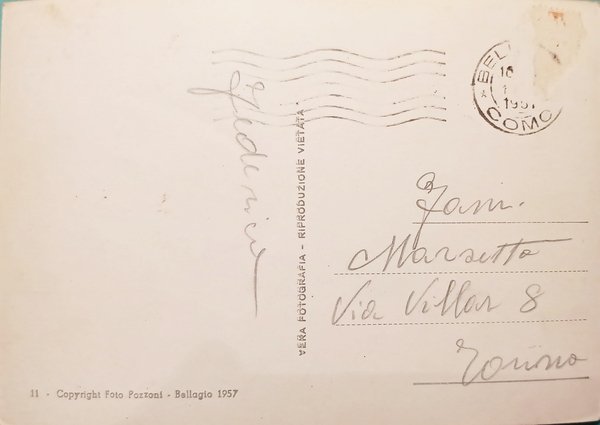 Federico
VERA FOTOGRAFIA - RIPRODUZIONE VIETATA
COMO
Fam.
Marsetto
Via Villar 8
Torino
11 - Copyright Foto Pozzoni - Bellagio 1957